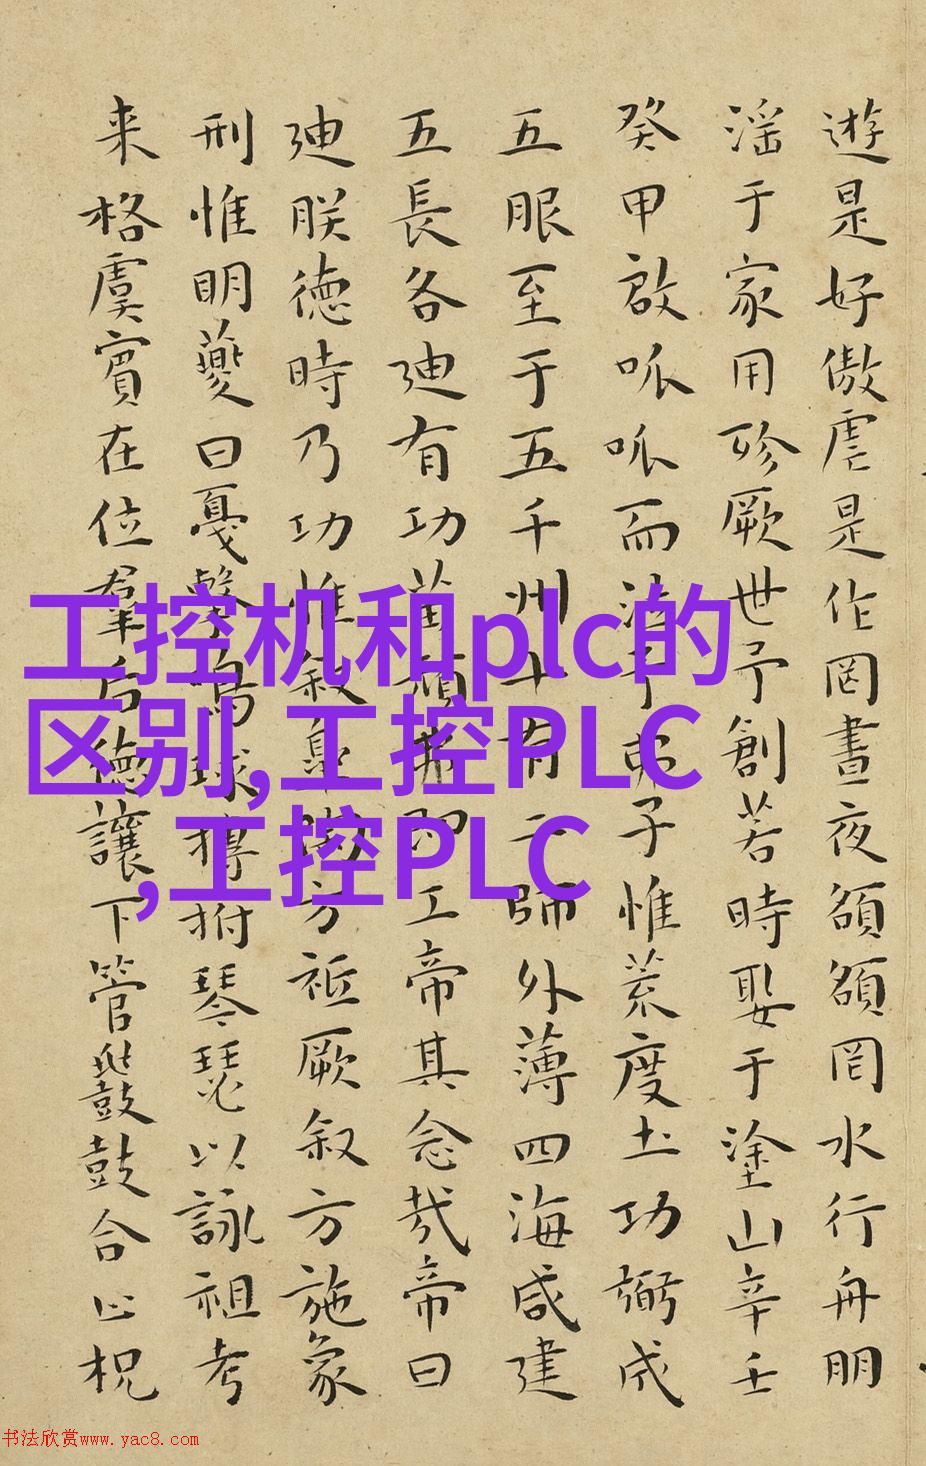 遊是好傲虐是作罔晝夜頟頟罔水行舟朋
滛于家用殄厥世予創若時娶于塗山辛壬
癸甲啟呱呱而泣予弗子惟荒度土功弼成
五服至于五千州十有二師外薄四海咸建
五長各廸有功苗頑弗即工帝其念哉帝曰
廸朕德時乃功惟叙皐陶方祗厥叙方施象
刑惟明夔曰戛擊鳴球搏拊琴瑟以詠祖考
来格虞賓在位羣后德讓下管鼗鼓合止柷
工控机和plc的
区别,工控PLC
,工控PLC
书法欣赏www.yac8.com